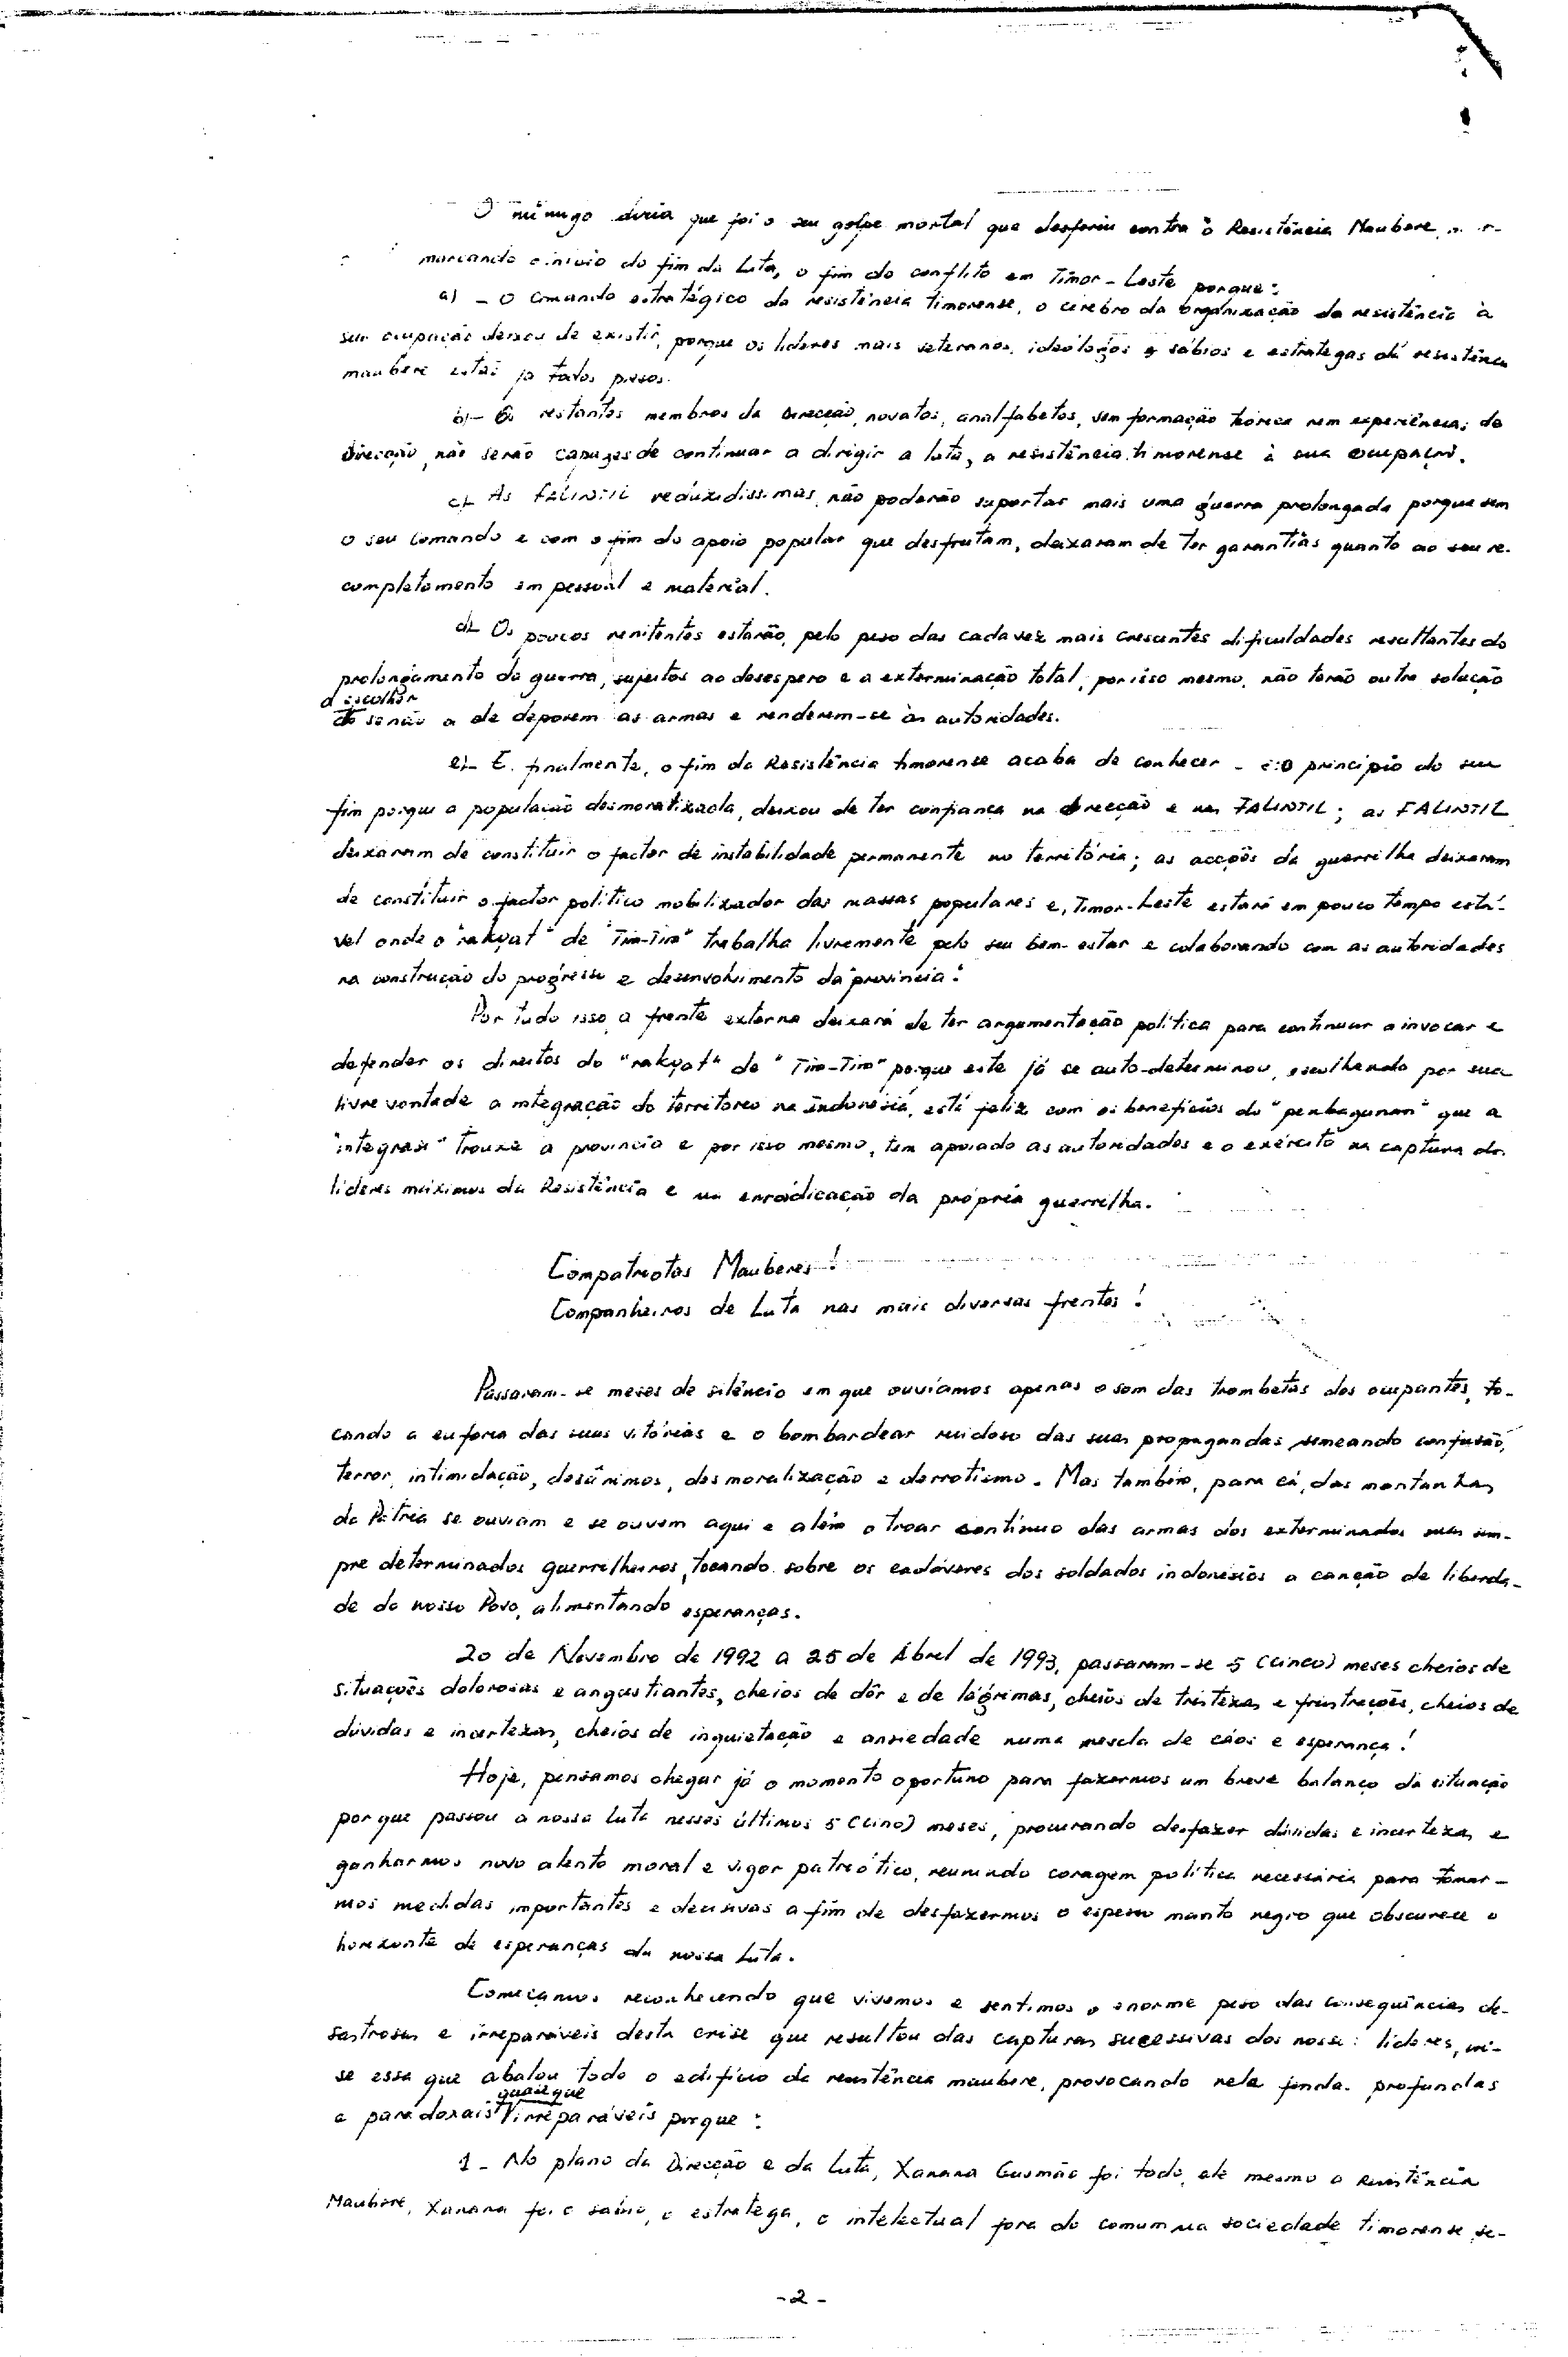 O inimigo diria que foi o seu golpe mortal que desferiu contra a Resistência Maubere,
marcando o início do fim da luta, o fim do conflito em Timor-Leste porque:
a) - O comando estratégico da resistência timorense, o cérebro da organização da resistência à
sua ocupação deixou de existir, porque os líderes mais veteranos, ideólogos e sábios e estrategas da resistência
maubere estão já todos presos.
b)- Os restantes membros da Direcção, novatos, analfabetos, sem formação teórica nem experiência; da
Direcção, não serão capazes de continuar a dirigir a luta, a resistência timorense à sua ocupação.
c)- As FALINTIL reduzidissimas, não poderão suportar mais uma guerra prolongada porque sem
o seu Comando e com o fim do apoio popular que desfrutam, deixaram de ter garantias quanto ao seu re-
completamento em pessoal e material.
d)- Os poucos renitentes estarão, pelo peso das cada vez mais crescentes dificuldades resultantes do
prolongamento da guerra, sujeitos ao desespero e a exterminação total, por isso mesmo, não terão outra solução
a escolher
senão a de deporem as armas e renderem-se às autoridades.
e)- E, finalmente, o fim da Resistência timorense acaba de conhecer - o princípio do seu
fim porque a população desmoralizada, deixou de ter confiança na Direcção e nas FALINTIL; as FALINTIL
deixaram de constituir o factor de instabilidade permanente no território; as acções da guerrilha deixaram
de constituir o factor político mobilizador das massas populares e, Timor-Leste estará em pouco tempo está-
vel onde o "rakyat" de "Tim-Tim" trabalha livremente pelo seu bem-estar e colaborando com as autoridades
na construção do progresso e desenvolvimento da "província".
Por tudo isso a frente externa deixará de ter argumentação política para continuar a invocar e
defender os direitos do "rakyat" de "Tim-Tim" porque este já se auto-determinou, escolhendo por sua
livre vontade a integração do território na Indonésia, está feliz com os benefícios do "penbagunan" que a
"integrasi" trouxe a província e por isso mesmo, tem apoiado as autoridades e o exército na captura dos
líderes máximos da Resistência e na enradicação da própria guerrilha.
Compatriotas Mauberes!
Companheiros de Luta nas mais diversas frentes!
Passaram-se meses de silêncio em que ouvíamos apenas o som das trombetas dos ocupantes, to-
cando a euforia das suas vitórias e o bombardear ruidoso das suas propagandas semeando confusão,
terror, intimidação, desânimos, desmoralização e derrotismo. Mas também, para cá, das montanhas
da Pátria se ouviam e se ouvem aqui e além o troar contínuo das armas dos exterminados mas sem-
pre determinados guerrilheiros, tocando sobre os cadáveres dos soldados indonésios a canção de liberda-
de do nosso Povo, alimentando esperanças.
20 de Novembro de 1992 a 25 de Abril de 1993, passaram-se 5 (cinco) meses cheios de
situações dolorosas e angustiantes, cheios de dôr e de lágrimas, cheios de tristezas e frustrações, cheios de
dúvidas e incertezas, cheios de inquietação e ansiedade numa mescla de cáos e esperança!
Hoje, pensamos chegar já o momento oportuno para fazermos um breve balanço da situação
por que passou a nossa luta nesses últimos 5 (cinco) meses, procurando desfazer dúvidas e incertezas e
ganharmos novo alento moral e vigor patriótico, reunindo coragem política necessária para tomar-
mos medidas importantes e decisivas a fim de desfazermos o espesso manto negro que obscurece o
horizonte de esperanças da nossa luta.
Começamos reconhecendo que vivemos e sentimos o enorme peso das consequências de-
sastrosas e irreparáveis desta crise que resultou das capturas sucessivas dos nossos líderes, cri-
se essa que abalou todo o edifício da resistência maubere, provocando nela fendas profundas
quase que
e paradoxais irreparáveis porque:
1 - No plano da Direcção e da Luta, Xanana Gusmão foi todo, até mesmo a Resistência
Maubere, Xanana foi o sábio, o estratega, o intelectual fora do comum na sociedade timorense, se-
- 2 -